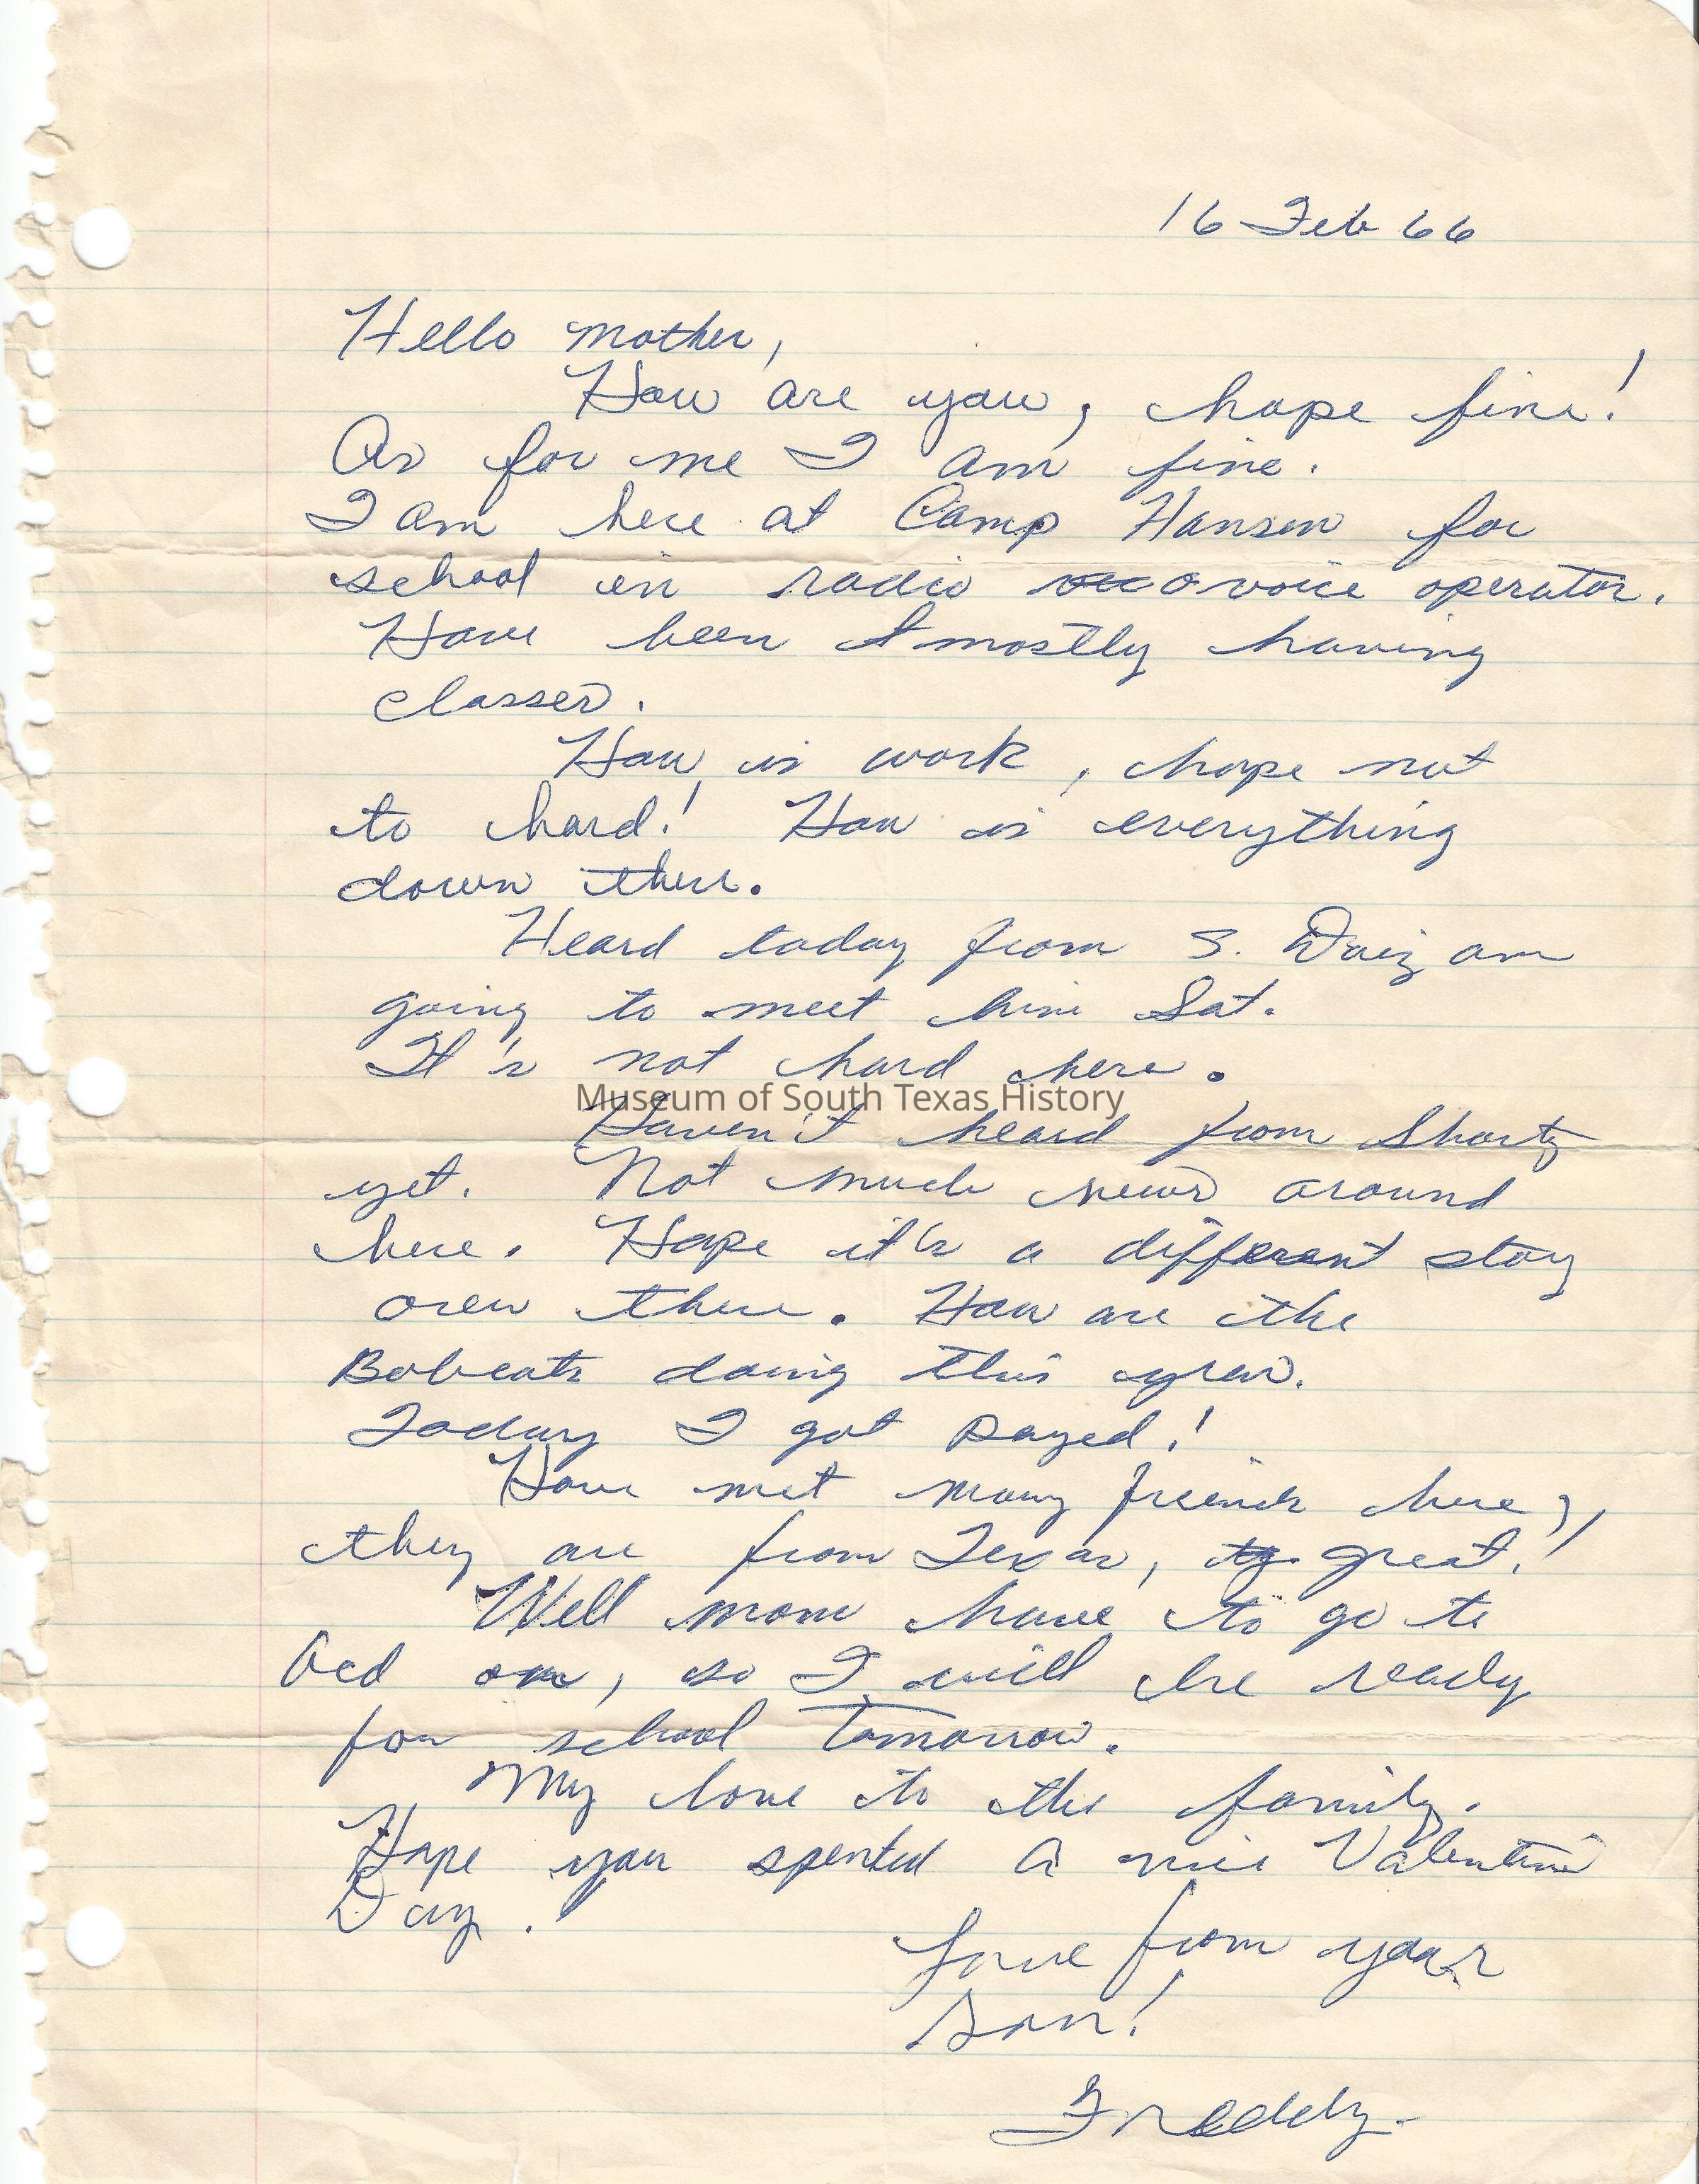 16 Feb 66
Hello mother,
How are you, hope fine!
As for me I am fine.
I am here at Camp Hansen for
school in radio voice operator.
Have been mostly having
classes.
How is work, hope not
to hard! How is everything
down there.
Heard today from S. am
going to meet him Sat.
It's not hard here.
Museum of South Texas History
Haven't heard from Shorty
yet. Not much news around
here. Hope it's a different story
over there. How are the
Bobcats doing this year.
Today I got payed!
Have met many friends here,
they are from Texas, great!
Well mom have to go to
bed so I will be ready
for school tomorrow.
My love to the family.
Hope you spented a nice Valentine
Day.
Love from your
Son!
Freddy.